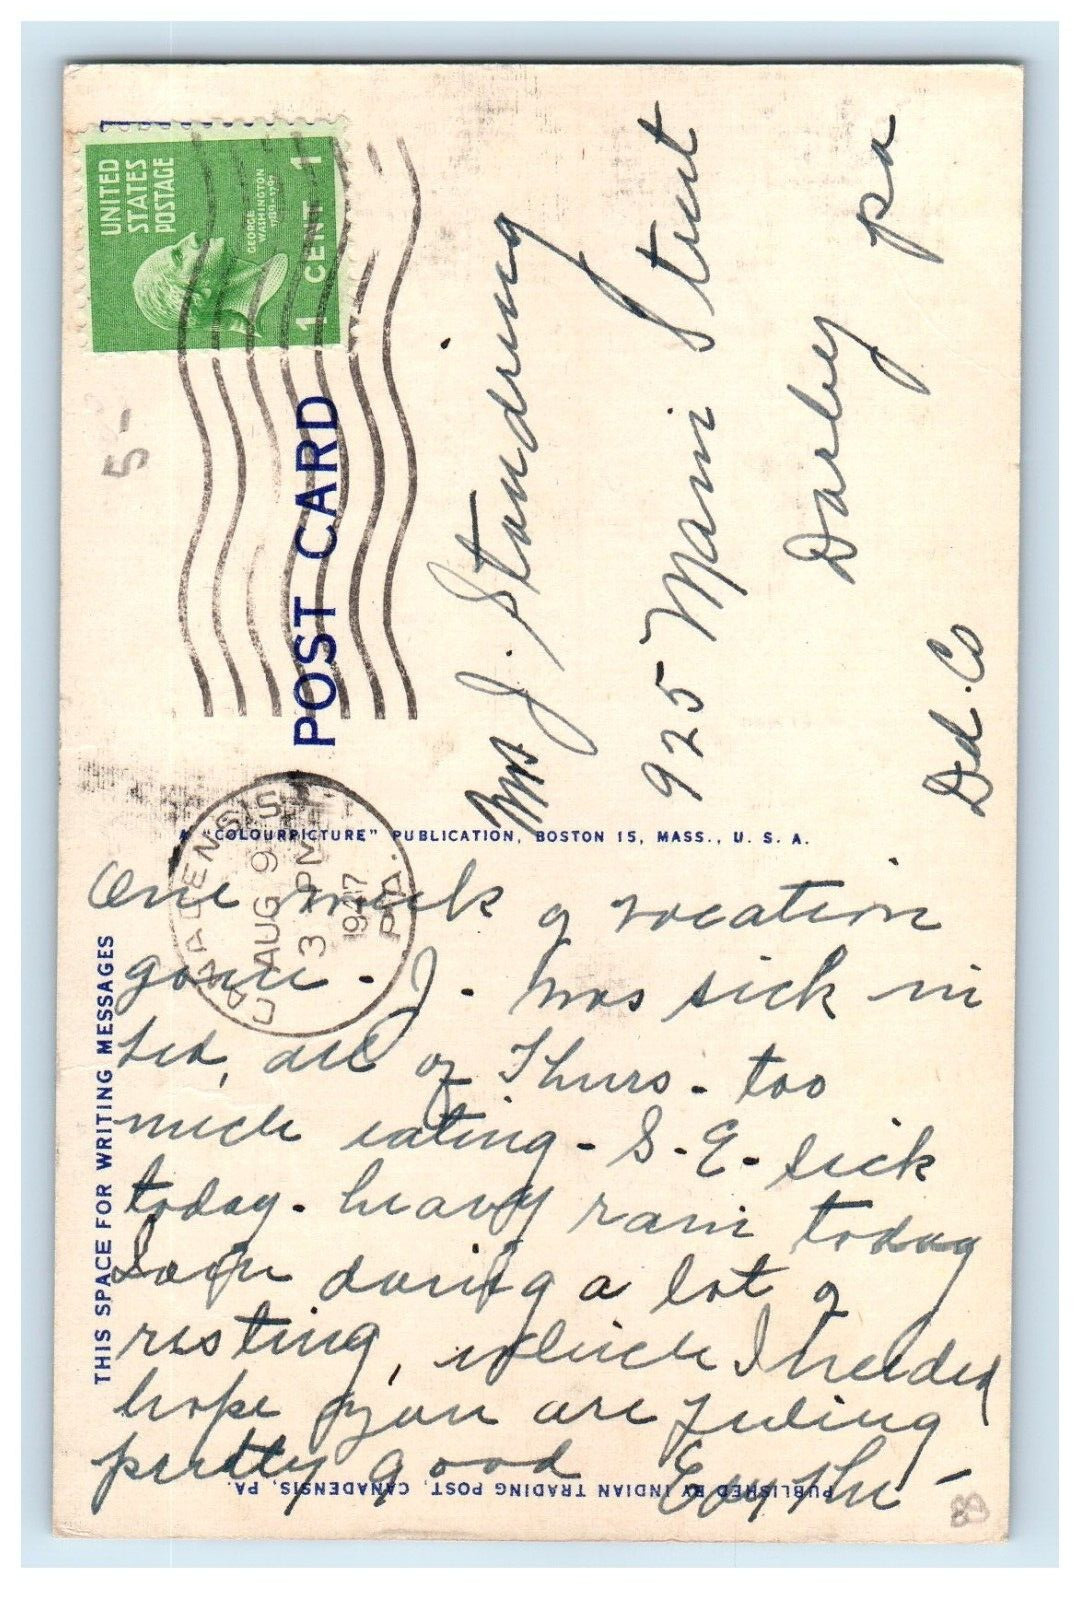 One week of vacation
gone - J. was sick in
bed, all of Thurs - too
much eating - S. E. sick
today. heavy rain today
doing a lot of
resting, which I needed
hope you are feeling
pretty good
THIS SPACE FOR WRITING MESSAGES
PUBLISHED BY INDIAN TRADING POST, CANADENSIS, PA.
A "COLOURPICTURE" PUBLICATION, BOSTON 15, MASS., U. S. A.
POST CARD
UNITED
STATES
POSTAGE
GEORGE
WASHINGTON
1789-1797
1 CENT 1
CANADENSIS
AUG 9
3 PM
1947
PA.
Mrs J. Standring
925 Main Street
Darby pa
Dd. Co
5-
88